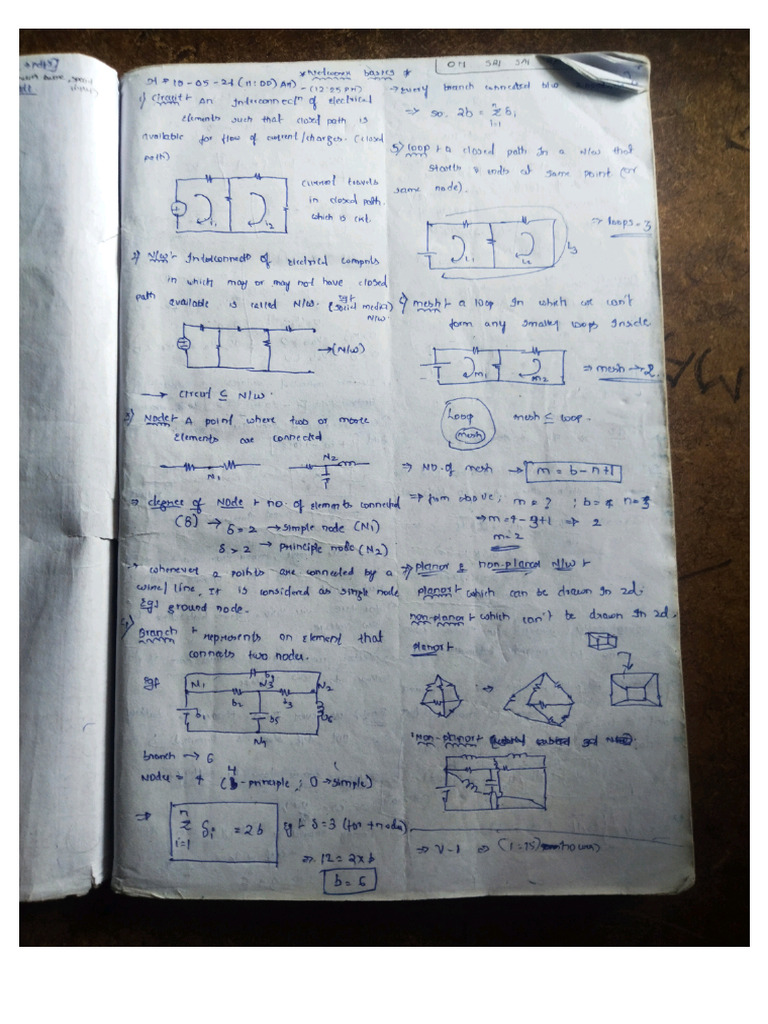 * Network basics *
OM SAI SAI
10-05-21 (11:00 AM)
- (12:05 PM)
1) Circuit + An Interconnectn of electrical
elements such that closed path is
available for flow of current/charges. (closed
path)
i1
i2
current travels
in closed path.
which is ckt.
2) N/w + Interconnectn of electrical
in which may or may not have closed
path available is called N/w. Eg:
(social media)
N/w.
→(N/w)
→ circuit ⊆ N/w.
3) Node + A point where two or more
elements are connected
N1
N2
⇒ degree of Node + no. of elements connected
(δ) → δ = 2 → simple node (N1)
δ > 2 → principle node (N2)
→ whenever 2 points are connected by a
wire/line, It is considered as simple node
Eg: ground node.
4) Branch + represents an element that
connects two nodes.
Eg:
N1
N3
N2
b1
b2
b3
b5
b6
N4
branch → 6
Nodes = 4 (4-principle, ; 0 → simple)
⇒ n Σ i=1 δi = 2b
eg + δ=3 (for 4 nodes)
⇒ 12 = 2xb
b = 6
→ Every branch connected b/w
⇒ so. 2b = n Σ i=1 δi
5) loop + a closed path In a N/w that
starts & ends at same point (or
same node).
i1
i2
⇒ loops = 3
6) mesh + a loop In which we can't
form any smaller loops Inside
m1
m2
⇒ mesh → 2
Loop
mesh
mesh ⊆ loop.
⇒ NO. of mesh → m = b - n + 1
⇒ from above; m = ? ; b = 4 n = 3
⇒ m = 4 - 3 + 1 ⇒ 2
m = 2
⇒ planar & non-planar N/w +
planar + which can be drawn In 2d.
non-planar + which can't be drawn In 2d.
planar +
⇒
Non-planar +
⇒ V - 1